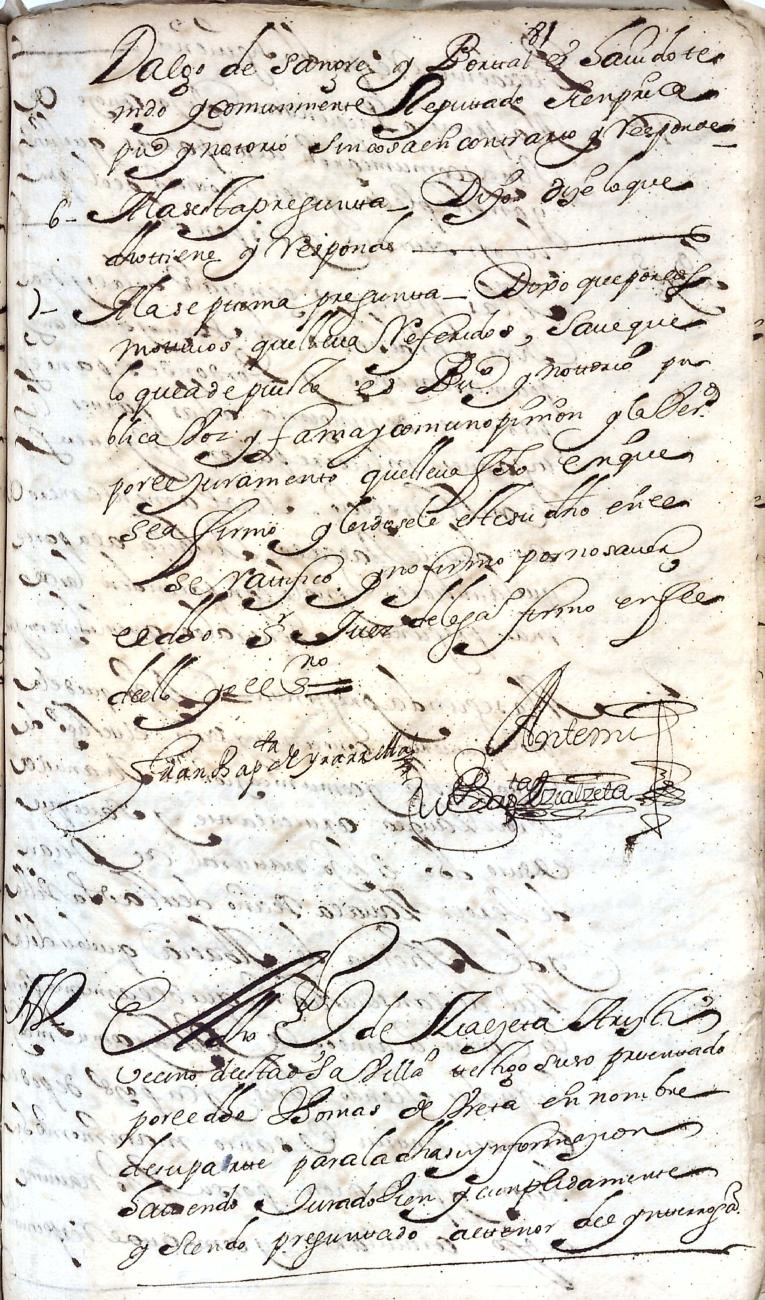 81
Dalgo de sangre y Portal es havido te
nido y comunmente Reputado sienpre
pu.co y notorio sin cosa en contrario y responde
6 - A la sesta pregunta - Dijo dize lo que
dho tiene y responde
7 - A la septima pregunta - Dijo que por los
motivos que lleva Referidos, save que
lo que a depuesto es Pu.co y notorio pu
blica Voz y fama y comun opinion y la Ver.d
por el juramento que lleva fho en que
se afirmo y leidosele este su dho en el
se ratifico y no firmo por no saver
el dho s.r Juez delegado firmo en fee
de ello yo el s.no
Juan Bap.ta de Yrarrilla
Antemi
Bap.ta Yzialzeta
El dho de Yzialzeta
vecino de esta d.ha Villa testigo suso presentado
por el dho Thomas de Ureta en nombre
de su parte para la dha su ynformazion
haviendo Jurado bien y cumplidamente
y siendo preguntado al tenor del ynterrog.o